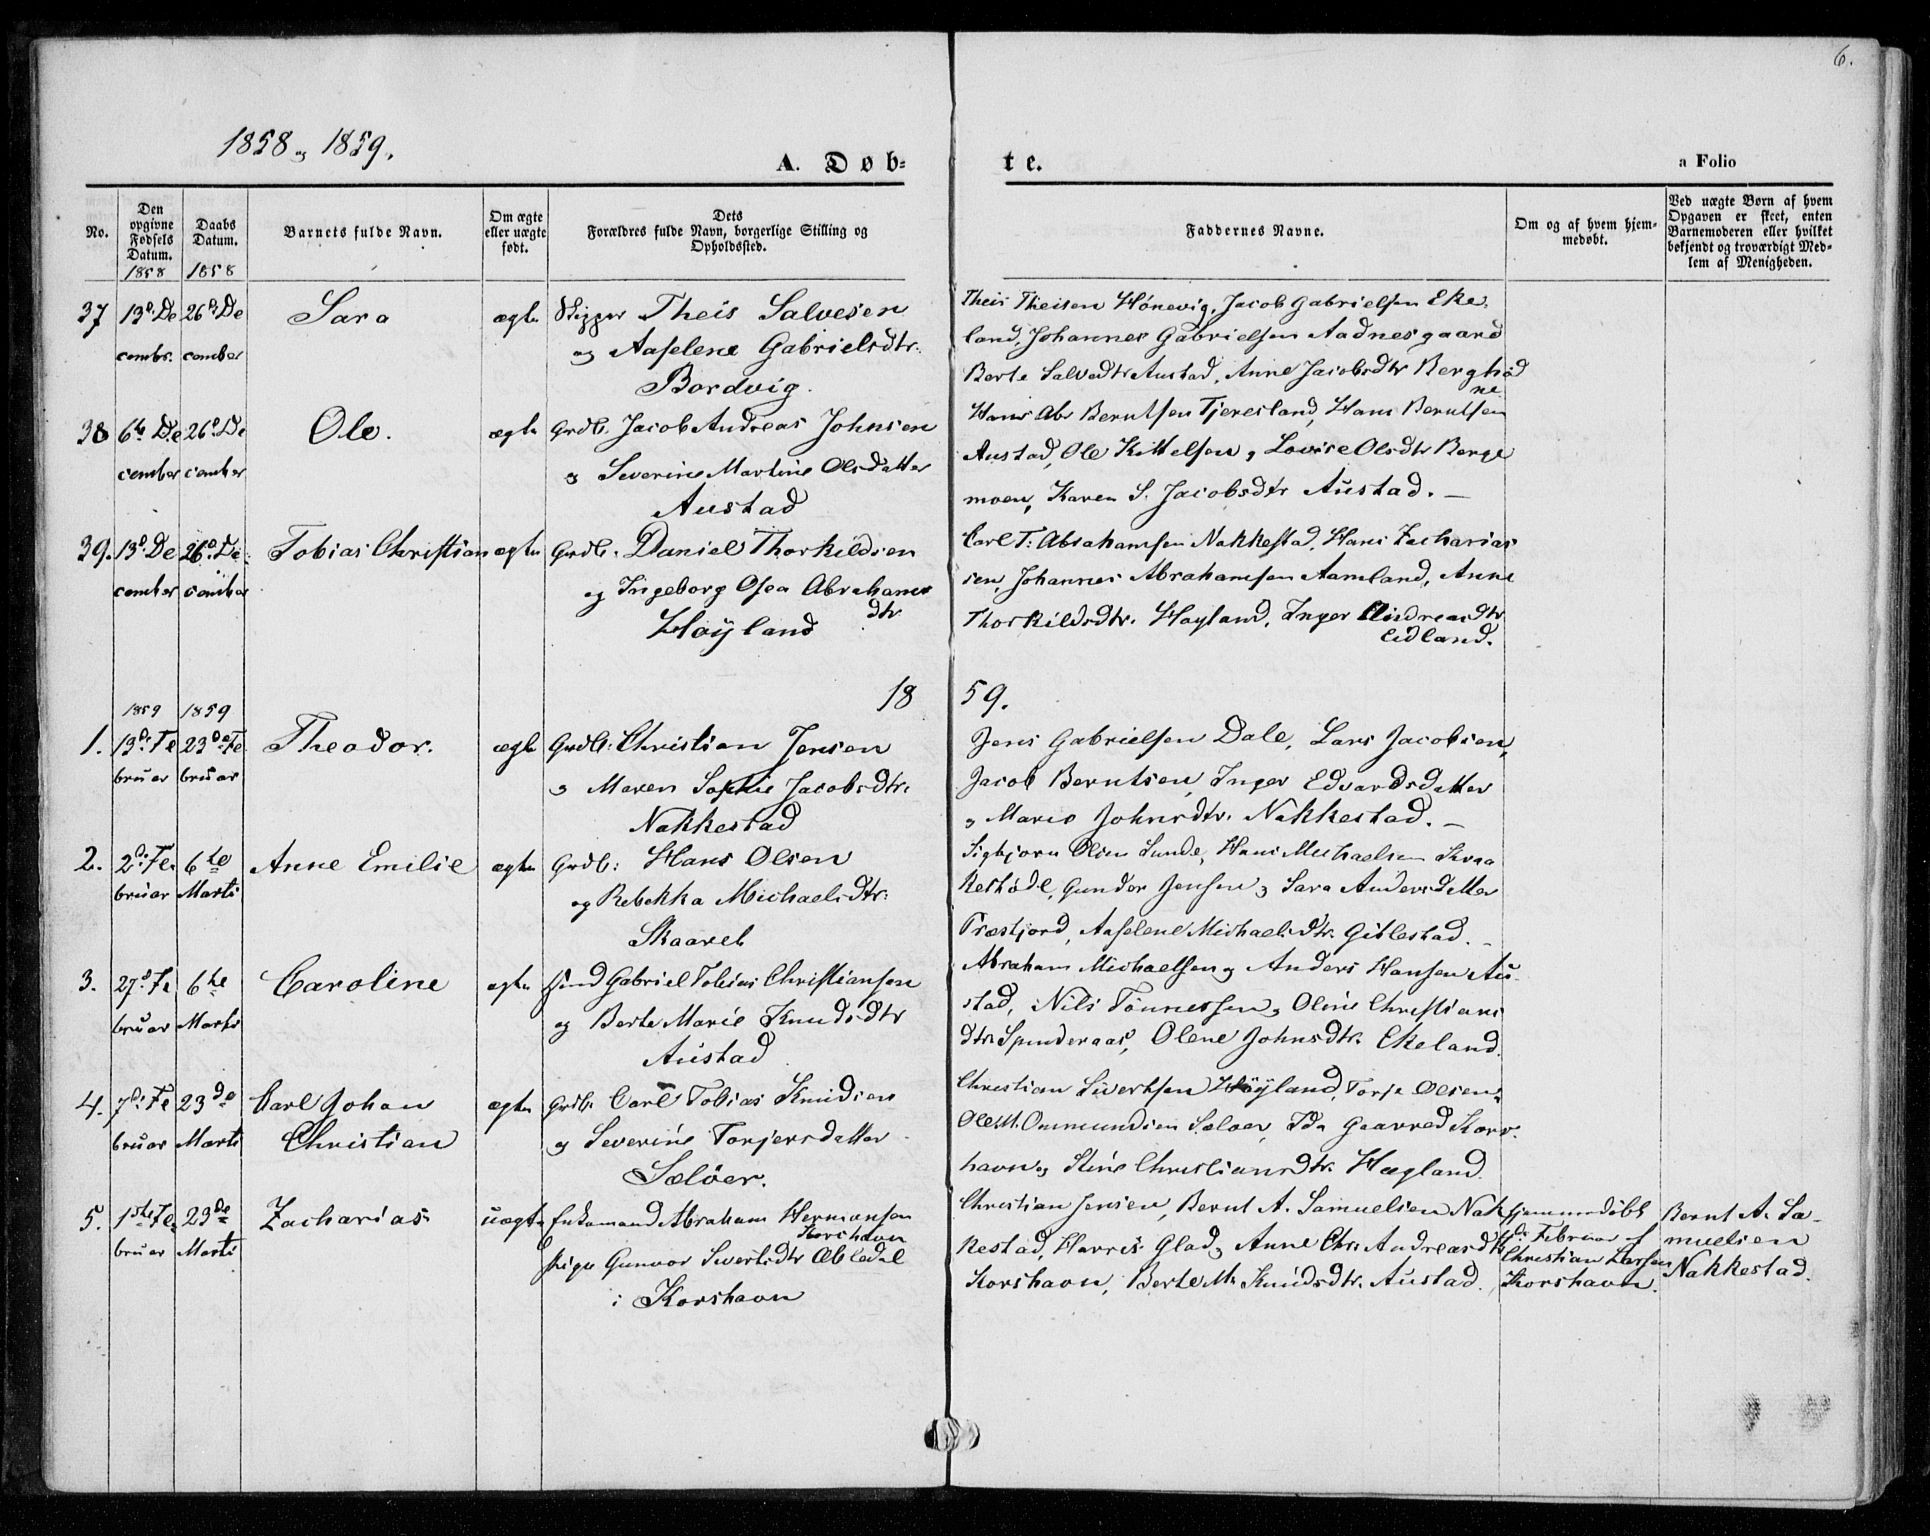 6.
1858 og 1859.
A. Døb-
te.
a Folio
No.
Den opgivne Fødsels Datum.
1858
Daabs Datum.
1858
Barnets fulde Navn.
Om ægte eller uægte født.
Dets
Forældres fulde Navn, borgerlige Stilling og
Opholdssted.
Faddernes Navne.
Om og af hvem hjem-
medøbt.
Ved uægte Børn af hvem
Opgaven er skeet, enten
Barnemoderen eller hvilket
bekjendt og troværdigt Med-
lem af Menigheden.
37 13d. De 26d. De Sara ægte Skipper Theis Salvesen
cembr. cember og Aaselene Gabrielsdtr.
Bordvig.
Theis Theisen Hönevig, Jacob Gabrielsen Eke
land, Johannes Gabrielsen Aadnesgaard
Berte Salvedtr Austad, Anne Jacobsdtr Berghöd
ne
38 6te De 26d. De Ole. ægte Grdb. Jacob Andreas Johnsen
cember cember og Severine Martine Olsdatter
Austad
Hans Abr Berntsen Tjeresland, Hans Berntsen
Austad, Ole Kittelsen og Lovise Olsdtr Berge
moen, Karen S. Jacobsdtr Austad. —
39. 13d. De 26d. De Tobias Christian ægte Grdb. Daniel Thorkildsen
cember cember og Ingeborg Osea Abrahams
dtr
Höyland
Carl T. Abrahamsen Nakkestad, Hans Zacharias
sen, Johannes Abrahamsen Aamland, Anne
Thorkildsdtr. Höyland, Inger Andreasdtr
Eidland.
18 59.
1859 1859
1. 13d. Fe 23de Fe Theodor. ægte Grdb: Christian Jensen
bruar bruar og Maren Sophie Jacobsdtr.
Nakkestad
Jens Gabrielsen Dale, Lars Jacobsen,
Jacob Berntsen, Inger Edvardsdatter
og Marie Johnsdtr. Nakkestad. —
2. 2d. Fe 6te Anne Emilie ægte Grdb: Hans Olsen
bruar Marti og Rebekka Michaelsdtr.
Skaarel
Sigbjorn Olsen Lunde, Hans Michaelsen Kraa
kestöde, Gunder Jensen og Sara Andersdatter
Præstjord, Aaselene Michaelsdtr. Gitlestad. —
3. 27d. Fe 6te Caroline ægte Gabriel Tobias Christiansen
bruar Marti og Berte Marie Knudsdtr
Austad
Abraham Michaelsen og Anders Hansen Au-
stad, Nils Tönnessen, Oline Christians
dtr Spinderaas, Olene Johnsdtr. Ekeland.
4. 7d. Fe 23de Carl Johan ægte Grdb. Carl Tobias Knudsen
bruar Marti Christian og Severine Torjersdatter
Sælöer.
Christian Sivertsen Höyland, Torje Olsen,
Ole M. Ommundsen Sæloer, Ida Gaarred Kors-
havn og Stine Christiansdtr. Hægland.
5. 1ste Fe 23de Zacharias uægte Enkemand Abraham Hermansen
Korshavn
bruar Marti Pige Gunvor Sivertsdtr Abledal
i Korshavn
Christian Jensen, Bernt A. Samuelsen Nak
kestad, Harris Glad og Anne Chr. Andreasdtr
Korshavn, Berte M. Knudsdtr. Austad.
Hjemmedöbt
Februar af
Christian Larsen
Korshavn.
Bernt A. Sa-
muelsen
Nakkestad.